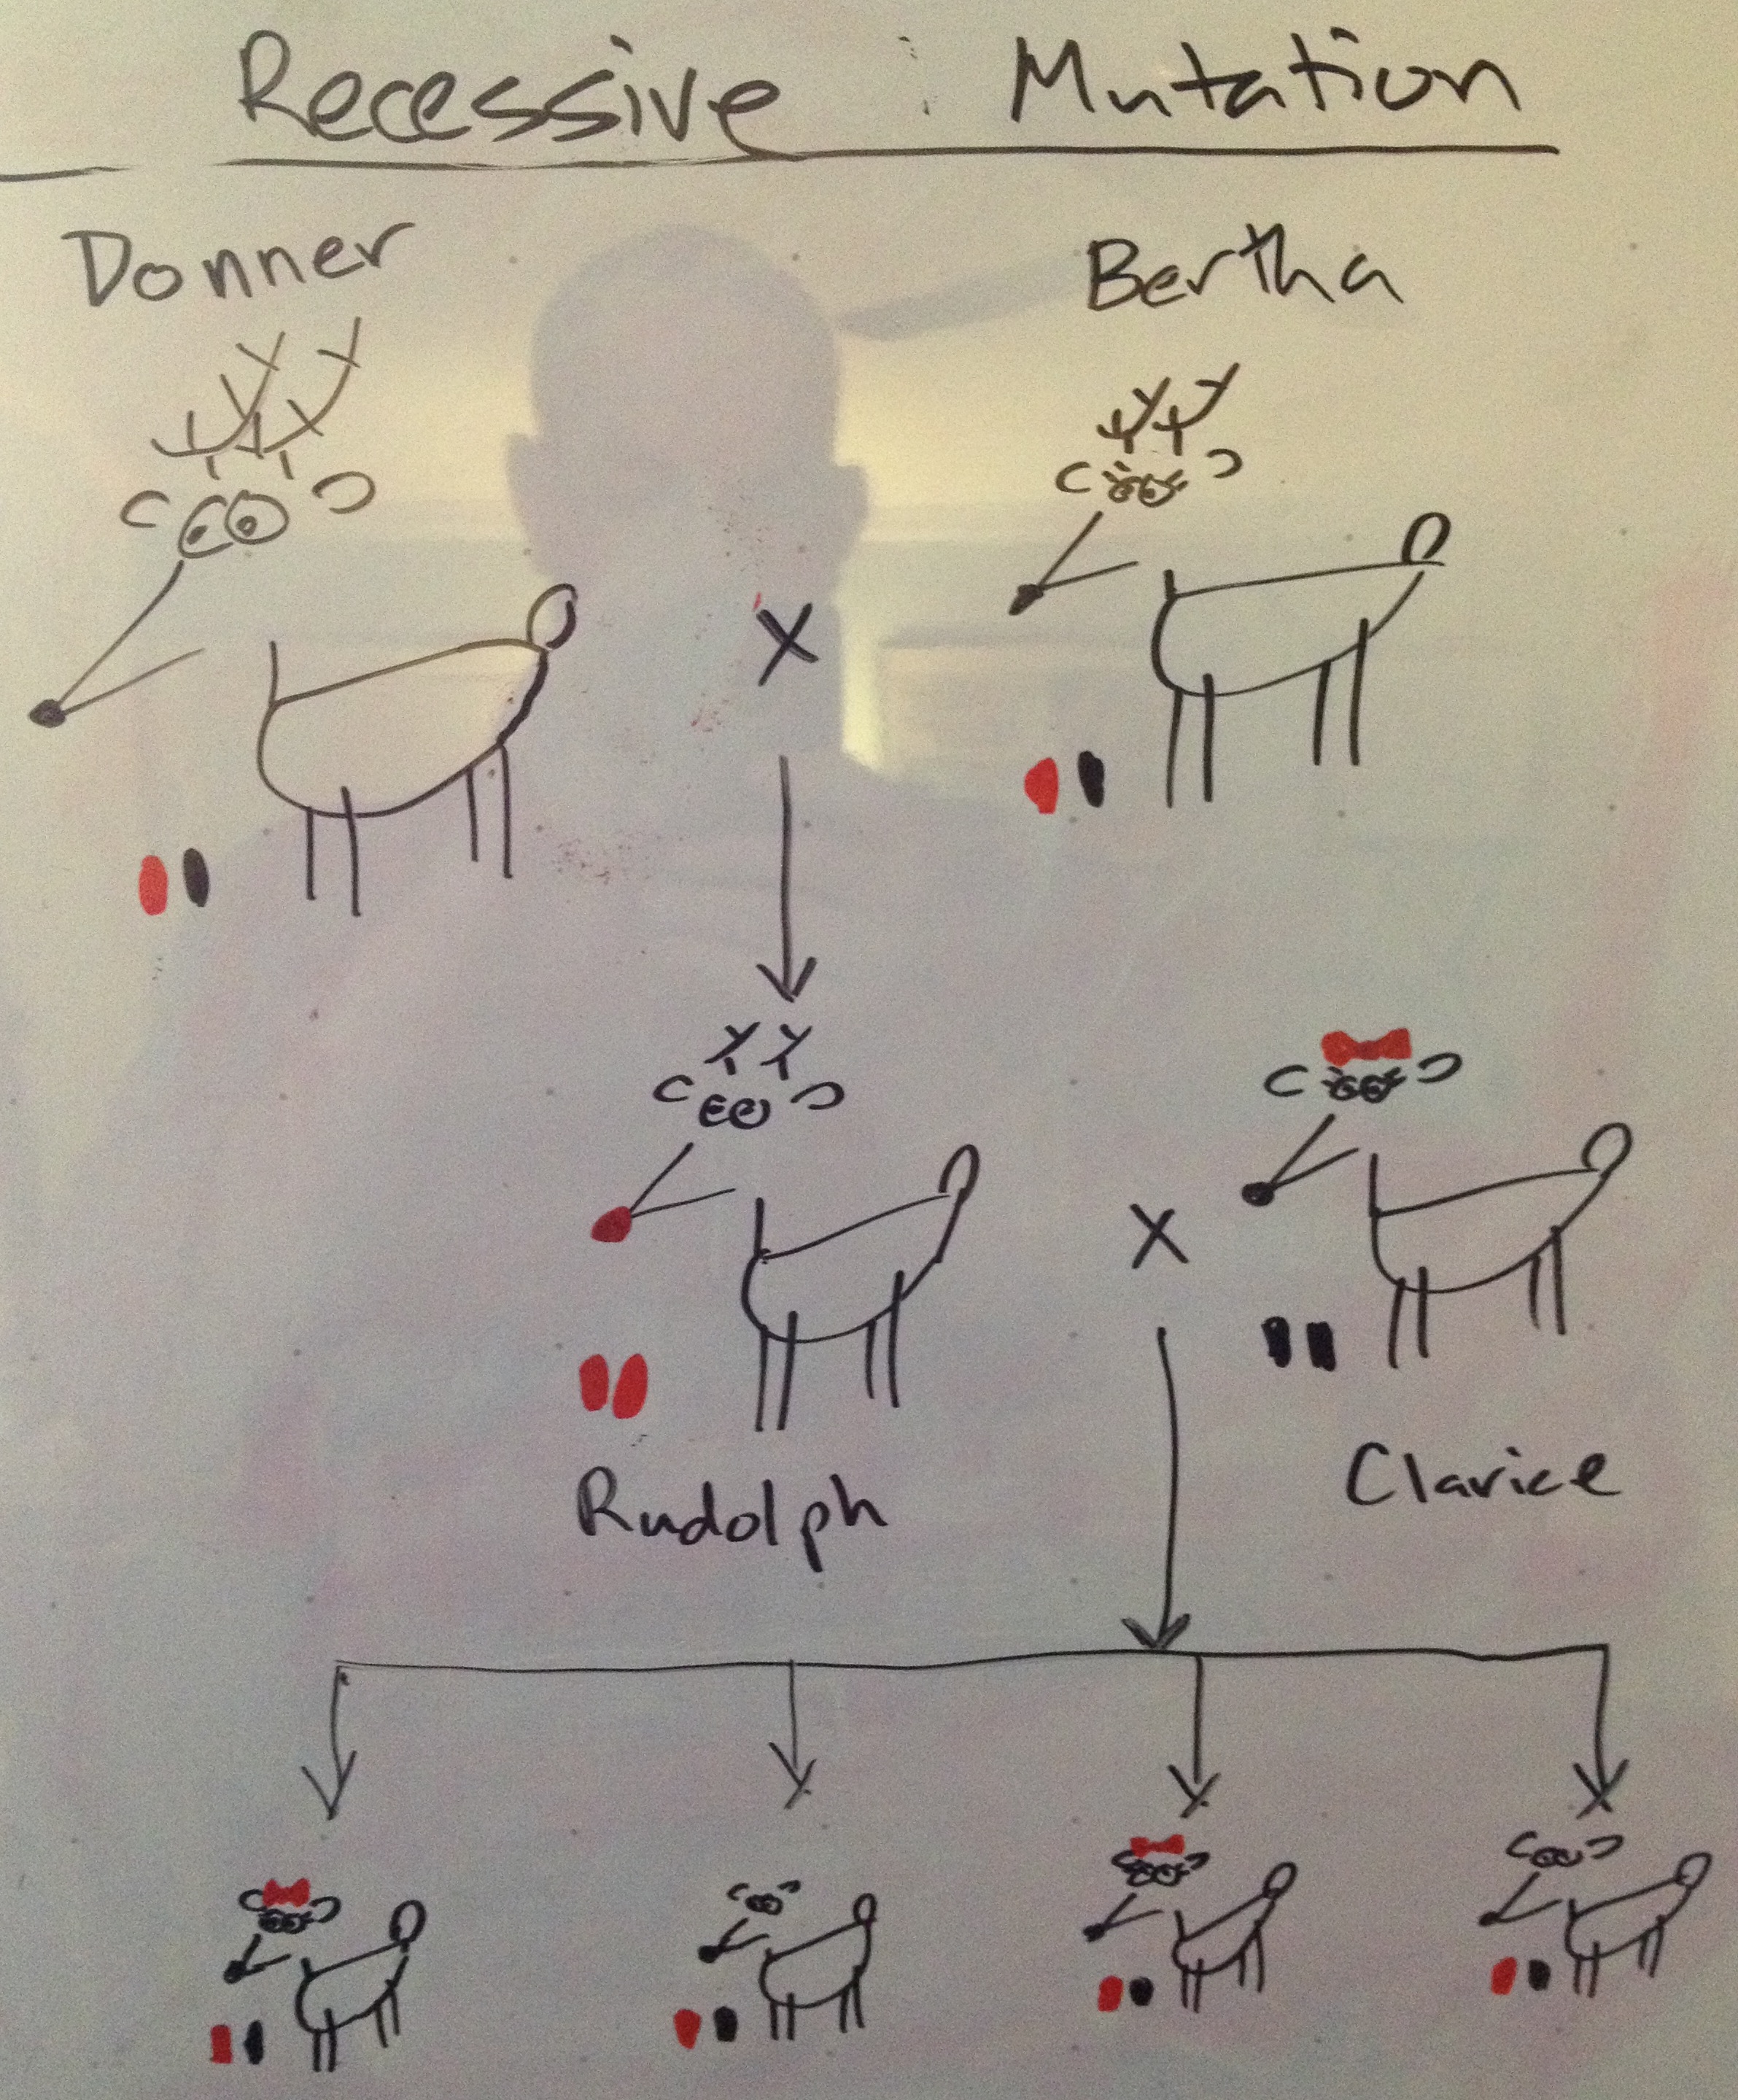 Recessive Mutation
Donner
Bertha
X
X
Rudolph
Clarice